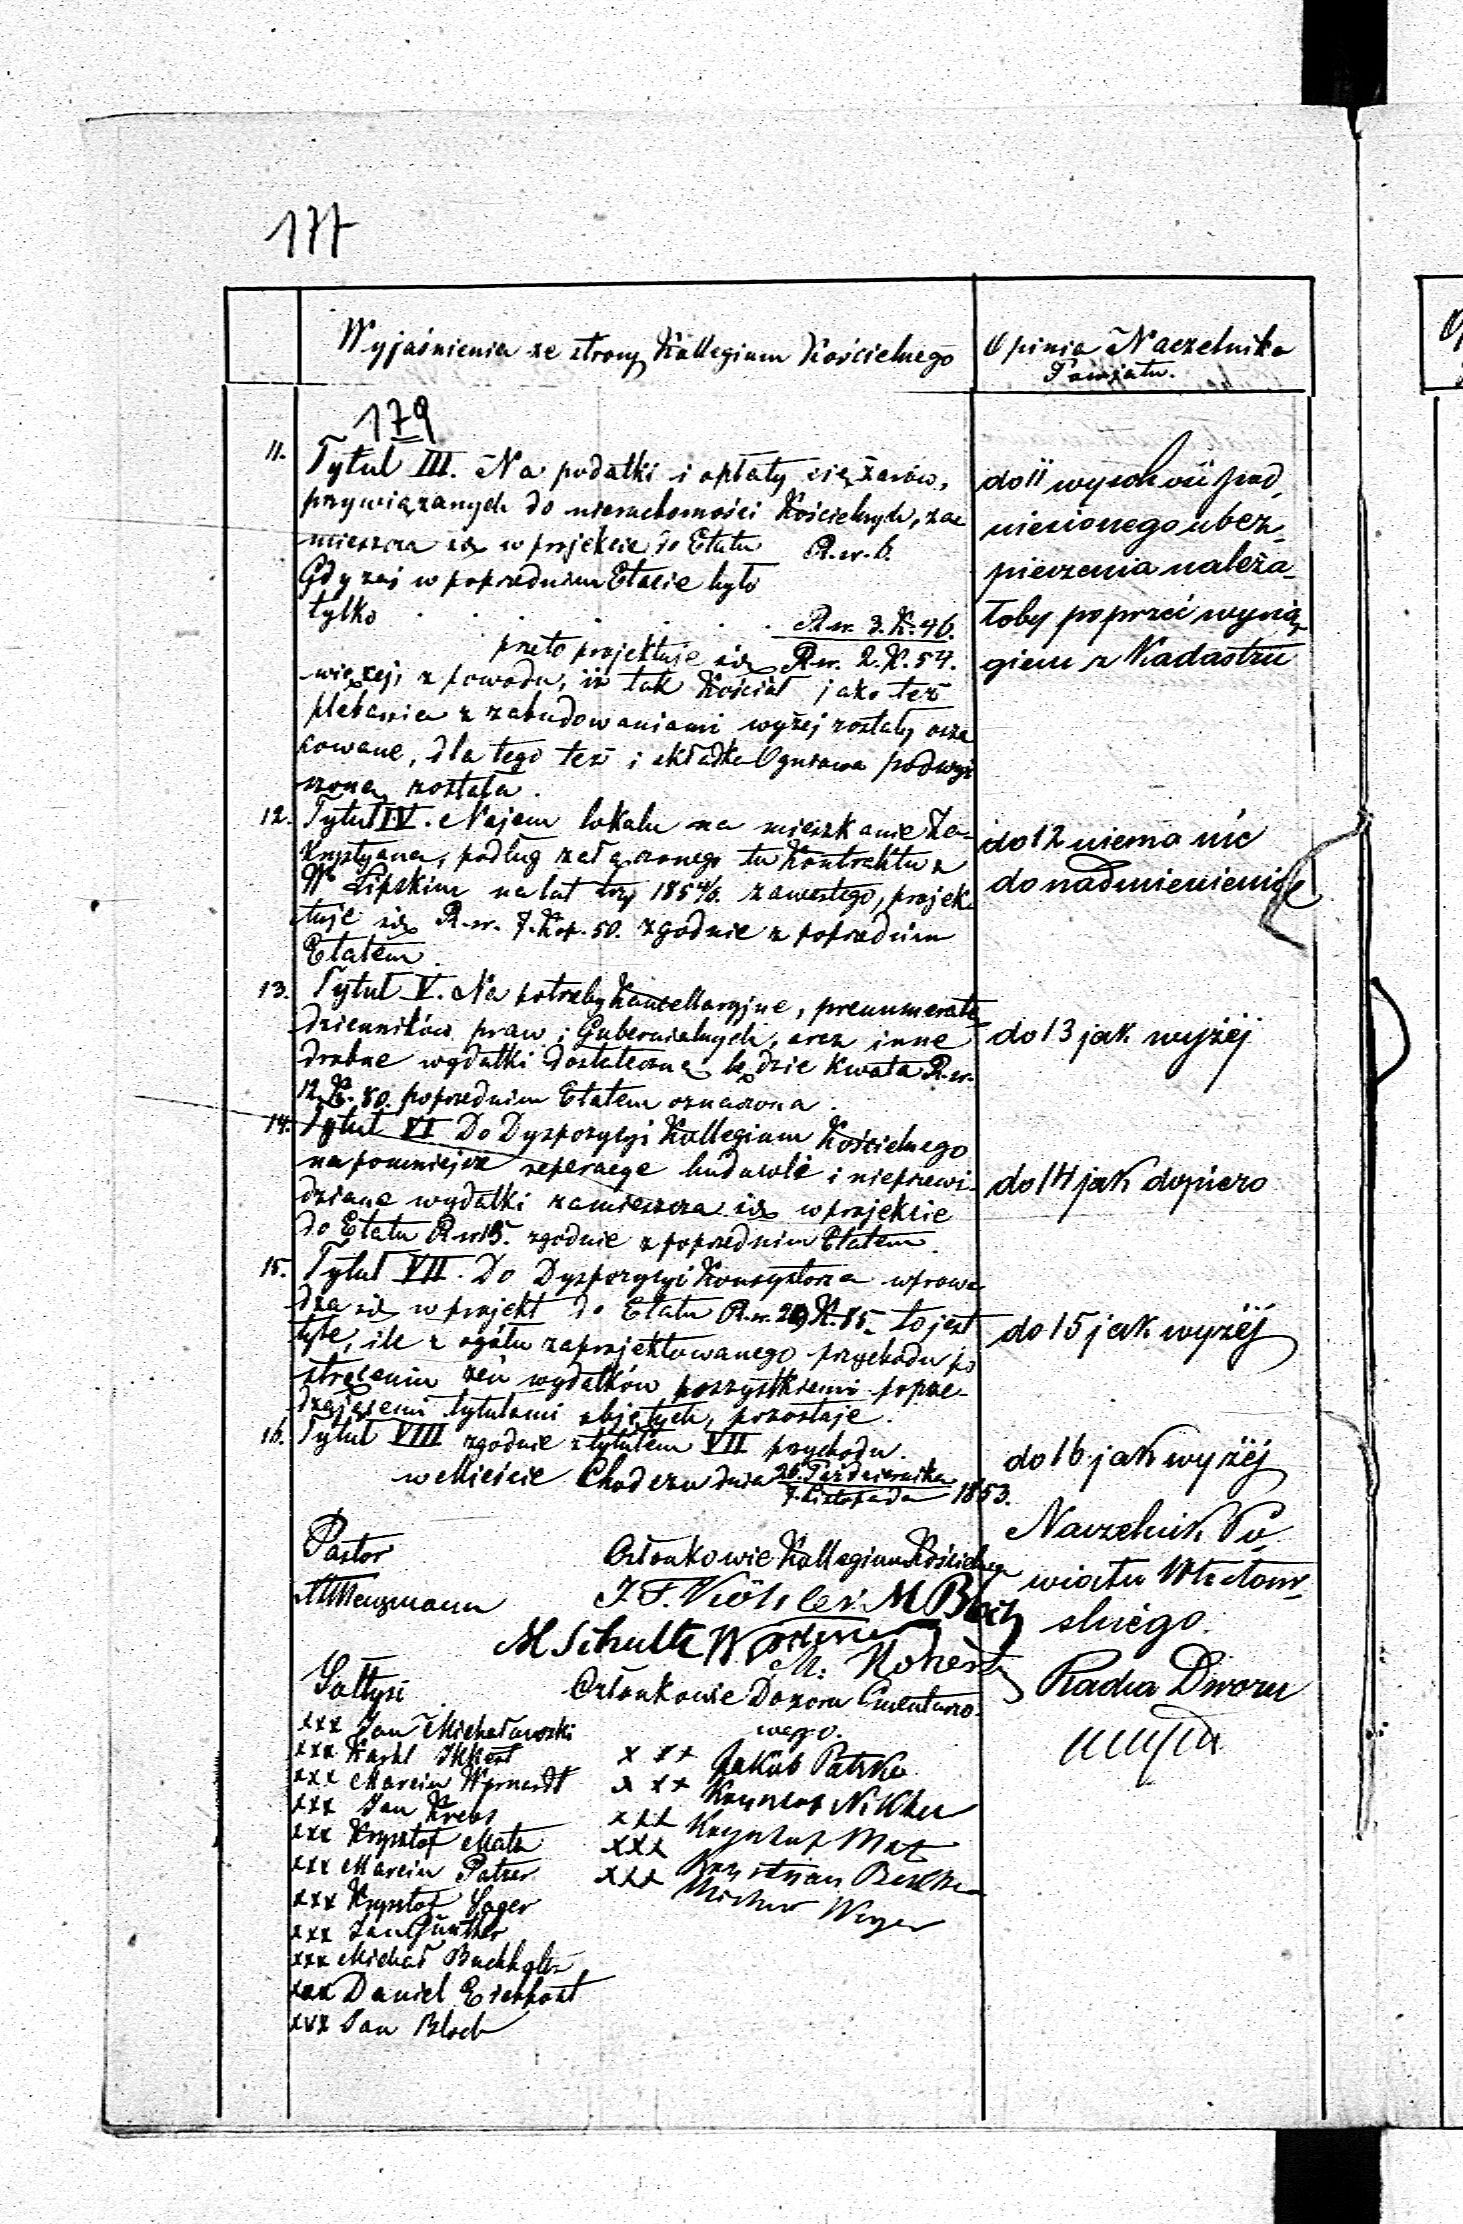 177
Wyjaśnienia ze strony Kollegium Kościelnego
Opinia Naczelnika
Powiatu.
179
11. Tytuł III. Na podatki i opłaty ciężarów,
przywiązanych do nieruchomości Kościelnych, za
mieszcza się w projekcie do Etatu R.sr. 6.
Gdy zaś w poprzednim Etacie było
tylko . . . . . . R.sr. 3. K. 46.
przeto projektuje się R.sr. 2. K. 54.
więcej, z powodu, iż tak Kościół jako też
plebania z zabudowaniami wyżej zostały osza
cowane, dla tego też i składka Ogniowa podwyż
szoną została.
do 11 wysokość pod
niesionego ubez-
pieczenia należa-
łoby poprzeć wycią
giem z Kadastru
12. Tytuł IV. Najem lokalu na mieszkanie Za-
krystyana, podług załączonego tu Kontraktu z
Wm Lipskim na lat trzy 1854/6. zawartego, projek
tuje się R.sr. 7. Kop. 50. zgodnie z poprzednim
Etatem.
do 12 niema nic
do nadmienienia
13. Tytuł V. Na potrzeby Kancellaryjne, prenumeratę
dzienników praw i Gubernialnych, oraz inne
drobne wydatki dostateczną będzie kwota R.sr.
12 K. 80. poprzednim Etatem oznaczona.
do 13 jak wyżéj
14. Tytuł VI Do Dyspozycyi Kollegium Kościelnego
na pomniejsze reperacye budowli i nieprzewi-
dziane wydatki zamieszcza się w projekcie
do Etatu R.sr 15. zgodnie z poprzednim Etatem.
do 14 jak dopiero
15. Tytuł VII. Do Dyspozycyi Konsystorza wprowa
dza się w projekt do Etatu R.sr. K. 85. to jest
tyle, ile z ogółu zaprojektowanego przychodu po
strąceniu zeń wydatków wszystkiemi poprze-
dzającemi tytułami objętych, pozostaje.
do 15 jak wyżéj
16. Tytuł VIII zgodnie z tytułem VII przychodu.
w Mieście Chodczu dnia 26. Października
7. Listopada 1853.
do 16 jak wyżéj
Pastor
Członkowie Kollegium Kościelnego
J. F. Köhler M Bloch
M Schultz
Naczelnik Po
wiatu Włocław
skiego.
Radca Dworu
Sołtysi
Członkowie Dozoru Cmentarzo
wego.
xxx Jan Michałowski
xxx Karol
xxx Marcin Wernerdt
xxx Jan Krebs
xxx Krysztof Matz
xxx Marcin Patzer
xxx Krysztof Sager
xxx Jan Günther
xxx Michał Buchholtz
xxx Daniel Eichhorst
xxx Jan Bloch
xxx Jakób
xxx Krysztof
xxx Krysztof Mat
xxx Krystian
xxx